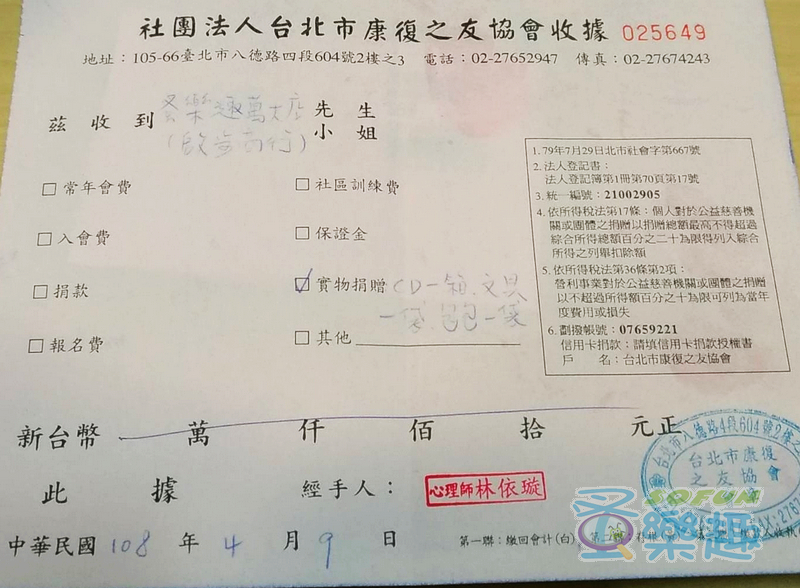 社團法人台北市康復之友協會收據 025649
地址：105-66臺北市八德路四段604號2樓之3 電話：02-27652947 傳真：02-27674243
茲收到 樂趣萬大店 先生
小姐
□常年會費 □社區訓練費
□入會費 □保證金
□捐款 ☑實物捐贈 CD一箱.文具
一袋.包包一袋
□報名費 □其他
1.79年7月29日北市社會字第667號
2.法人登記書：
法人登記簿第1冊第70頁第17號
3.統一編號：21002905
4.依所得稅法第17條：個人對於公益慈善機
關或團體之捐贈以捐贈總額最高不得超過
綜合所得總額百分之二十為限得列入綜合
所得之列舉扣除額
5.依所得稅法第36條第2項：
營利事業對於公益慈善機關或團體之捐贈
以不超過所得額百分之十為限可列為當年
度費用或損失
6.劃撥帳號：07659221
信用卡捐款：請填信用卡捐款授權書
戶 名：台北市康復之友協會
新台幣 萬 仟 佰 拾 元正
此據 經手人： 心理師林依璇
中華民國 108 年 4 月 9 日
第一聯：繳回會計(白)
台北市八德路4段604號2樓之
台北市康復
之友協會
SOFUN
樂趣